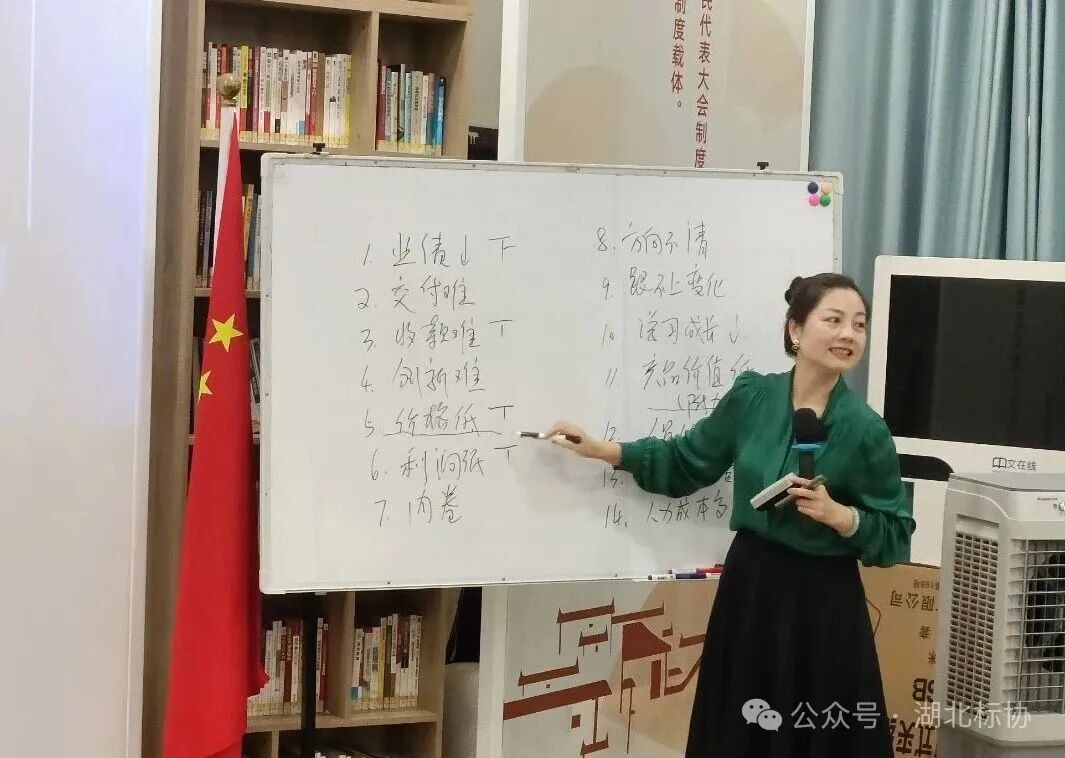 民代表大会制度
制度载体。
1. 业绩↓ 下
2. 交付难
3. 收款难 丅
4. 创新难
5. 价格低 丅
6. 利润低 丅
7. 内卷
8. 方向不清
9. 跟不上变化
10. 学习成长↓
11. 产品价值低
12.
13.
14. 人力成本高
文在线
有限公司
套
米
SB
公众号 湖北标协